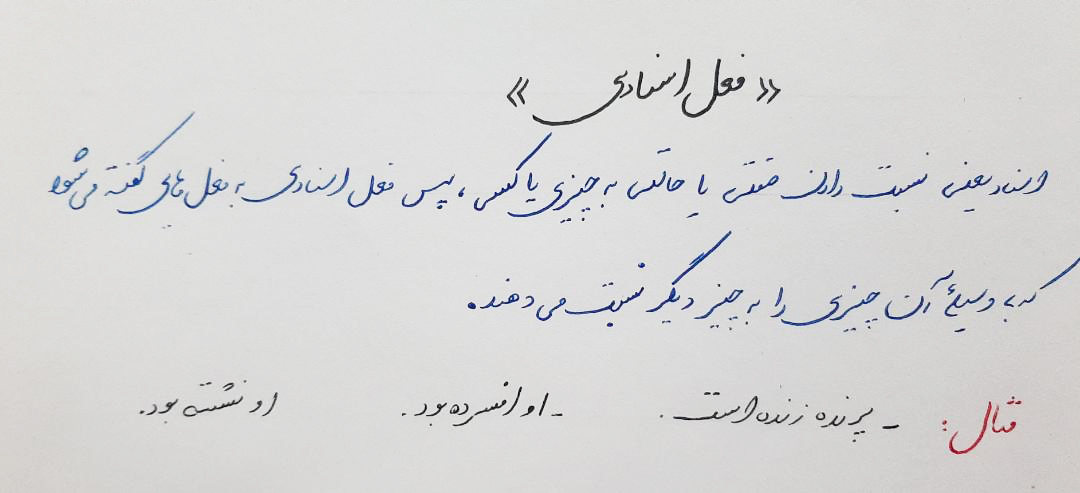 « فعل اسنادی »
اسناد یعنی نسبت دادن صفتی یا حالتی به چیزی یا کسی ، پس فعل اسنادی به فعل هایی گفته می شود
که به وسیلهٔ آن چیزی را به چیز دیگر نسبت می دهند.
مثال : – پرنده زنده است . – او افسرده بود . او نشسته بود.